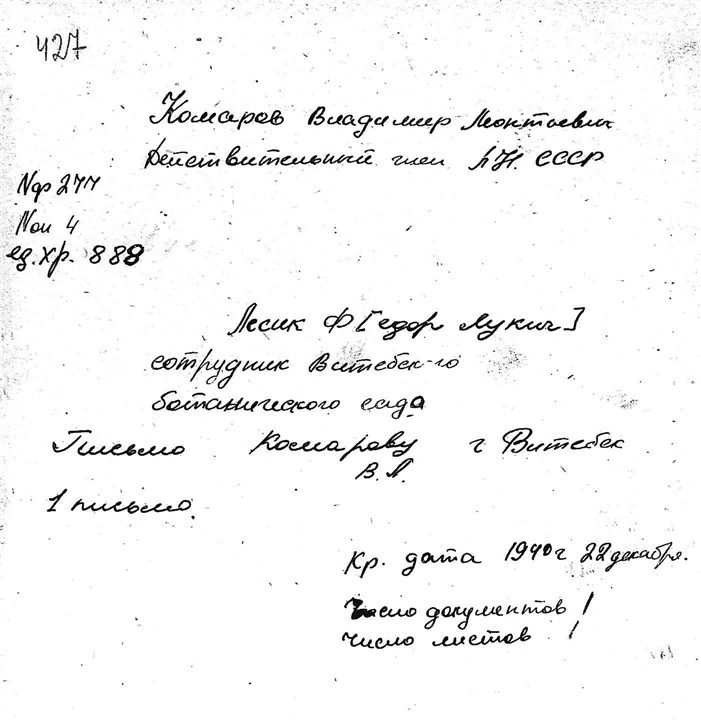 427
Комаров Владимир Леонтьевич
Действительный член АН СССР
№ф 277
№оп 4
ед.хр. 888
Лесик Ф[едор Лукич]
сотрудник Витебск-го
ботанического сада
Письмо Комарову г Витебск
В.Л.
1 письмо.
Кр. дата 1940 г 22 декабря.
Число документов 1
Число листов 1